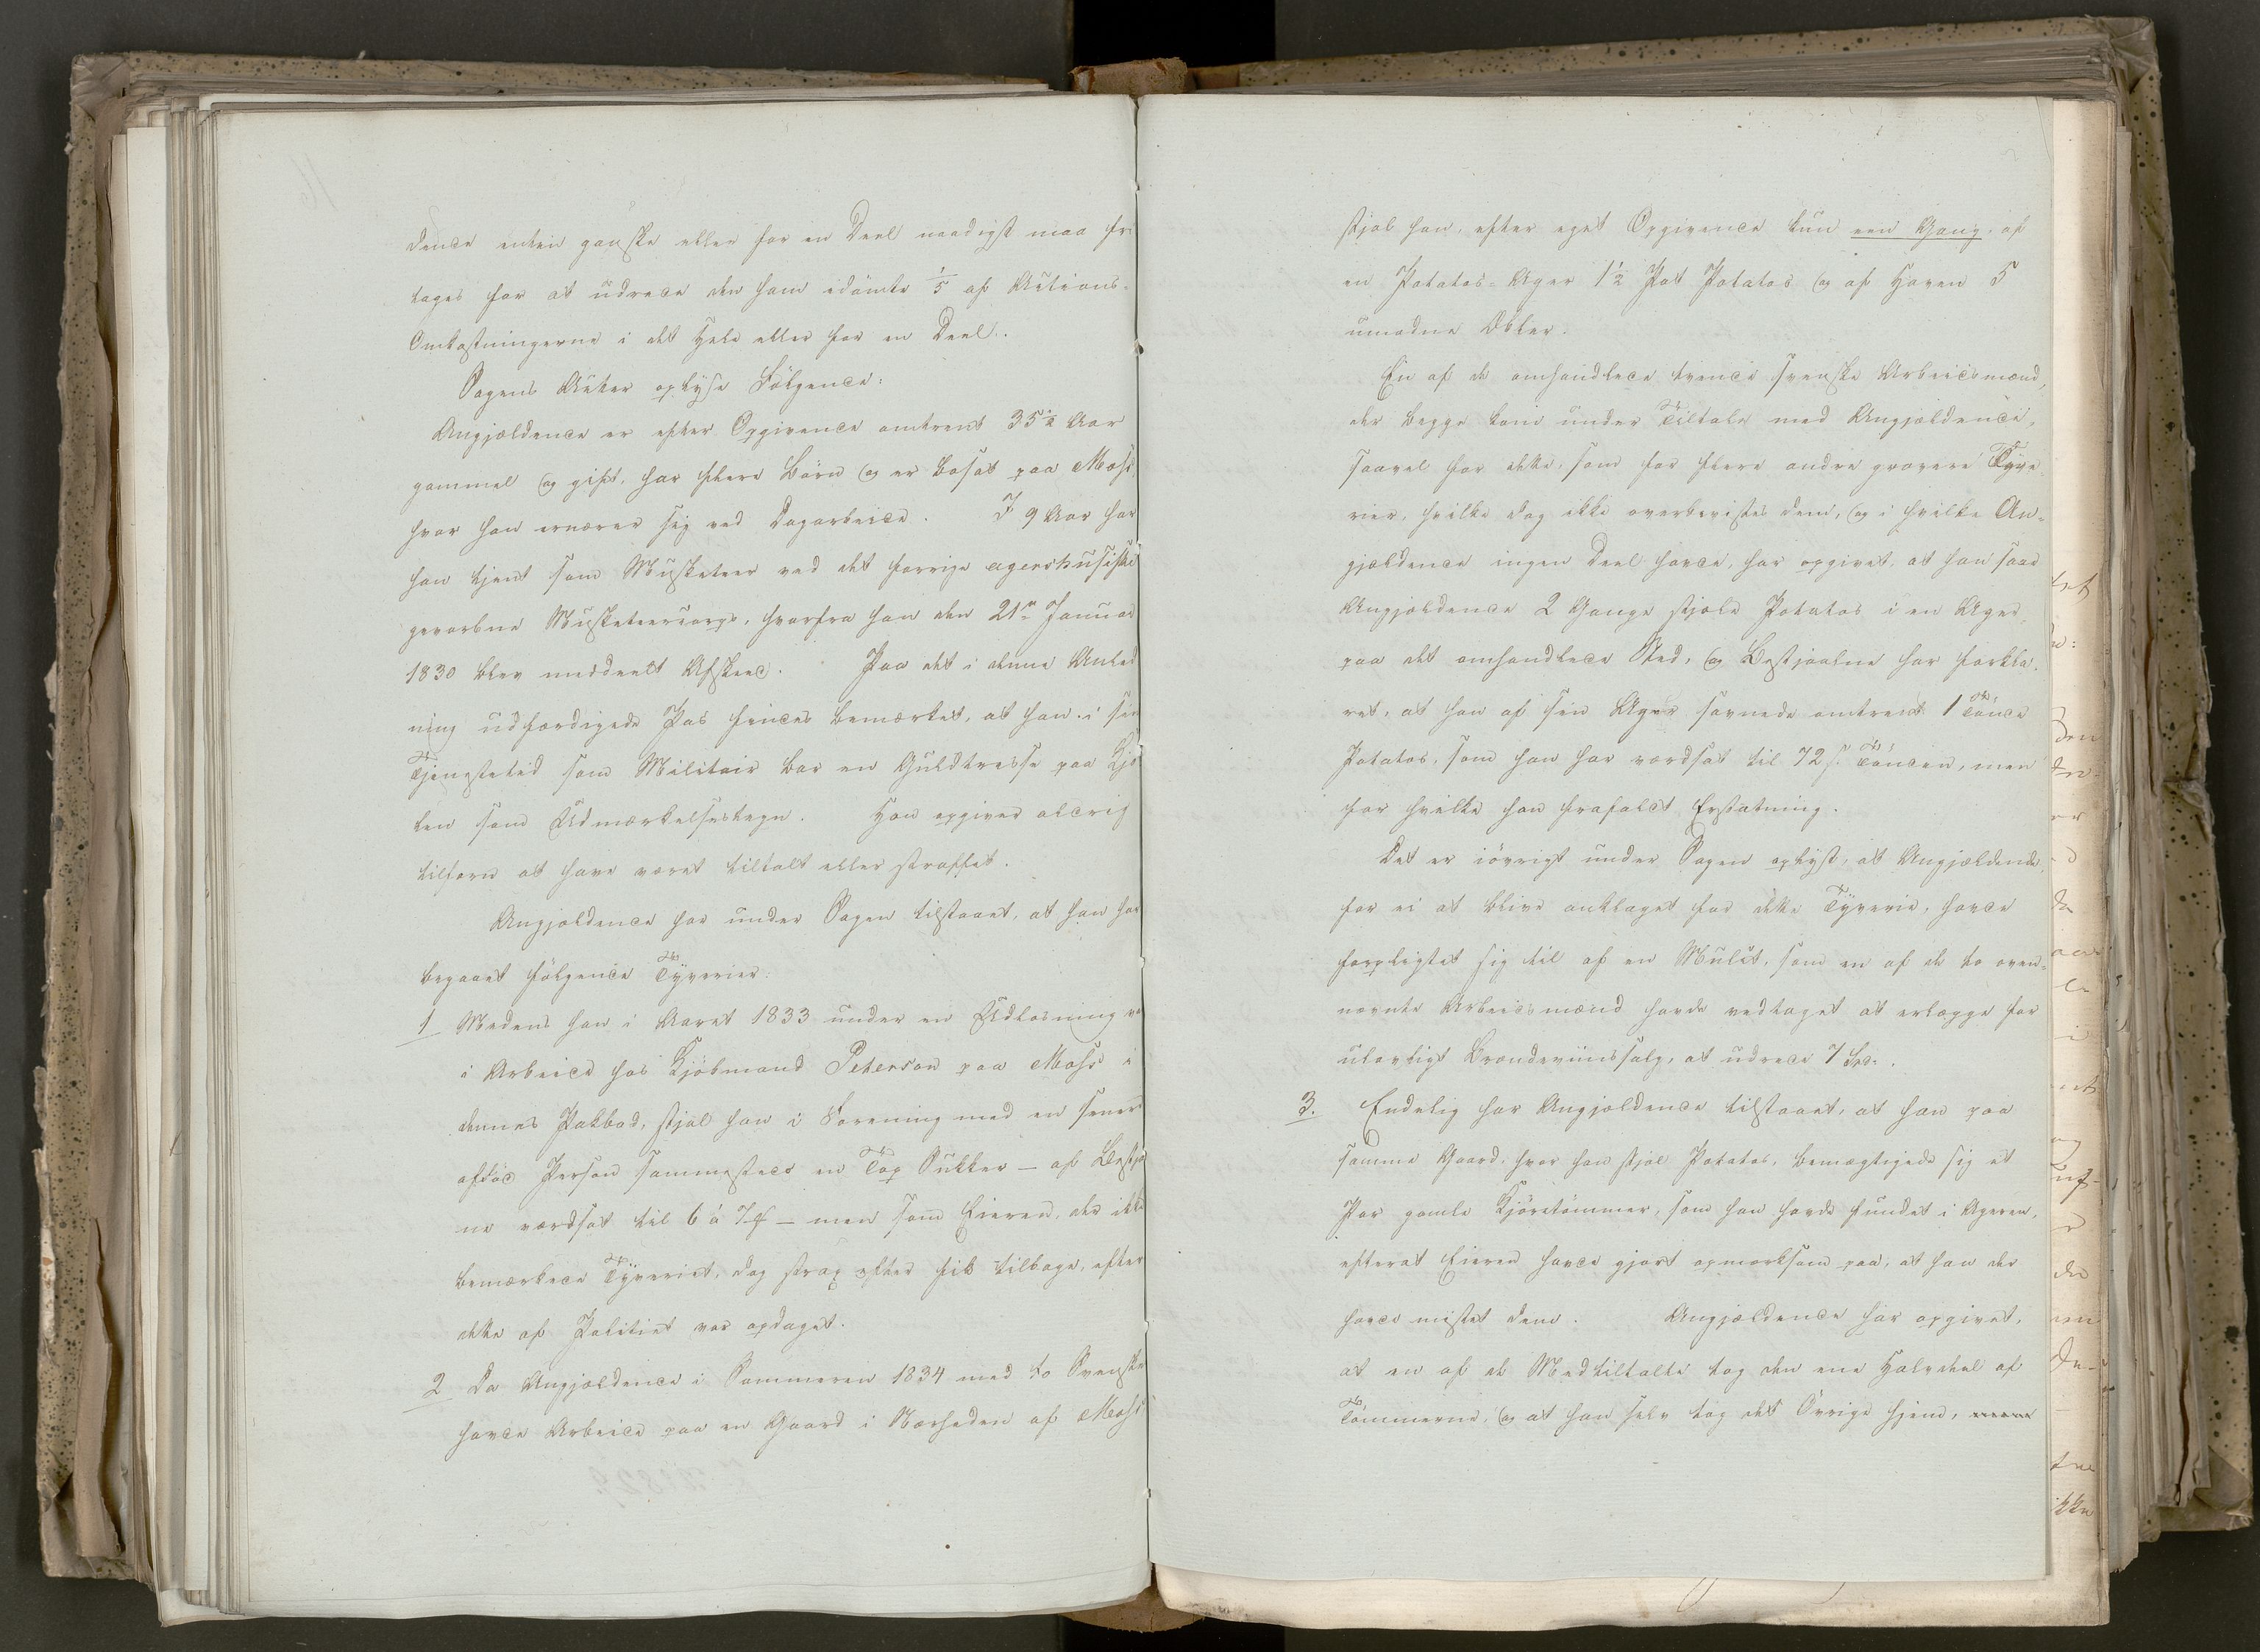 dende enten ganske eller for en Deel naadigst maa fri
tages for at udrede den ham idömte 1/5 af Actions-
Omkostningerne i det Hele eller for en Deel.
Sagens Acter oplyse Fölgende:
Angjældende er efter Opgivende omtrent 35½ Aar
gammel og gift, har flere Börn og er bosat paa Moss
hvor han ernærer sig ved Dagarbeide. I 9 Aar har
han tjent som Musketeer ved det forrige agershusiske
gevorbne Musketeercorps, hvorfra han den 21de Januar
1830 blev meddeelt Afskeed. Paa det i denne Anled
ning udfærdigede Pas findes bemærket, at han i sin
Tjenestetid som Militair bar en Guldtresse paa Kjo
len som Udmærkelsestegn. Han opgiver aldrig
tilforn at have været tiltalt eller straffet.
Angjældende har under Sagen tilstaaet, at han har
begaaet fölgende Tyverier:
1 Medens han i Aaret 1833 under en Udlosning var
i Arbeide hos Kjöbmand Peterson paa Moss i
dennes Pakbod, stjal han i Forening med en senere
afdöd Person sammesteds en Top Sukker – af Bestjaal
ne værdsat til 6 à 7 – men som Eieren, der ikke
bemærkede Tyveriet, dog strax efter fik tilbage, efter
dette af Politiet var opdaget.
2 Da Angjældende i Sommeren 1834 med to Svenske
havde Arbeide paa en Gaard i Nærheden af Moss
stjal han, efter eget Opgivende kun een Gang, af
en Potatos-Ager 1½ Pot Potatos og af Haven 5
umodne Æbler.
En af de omhandlede tvende svenske Arbeidsmænd,
der begge kom under Tiltale med Angjældende,
saavel for dette, som for flere andre grovere Tyve
rier, hvilke dog ikke overbevistes dem, og i hvilke An-
gjældende ingen Deel havde, har opgivet, at han saae
Angjældende 2 Gange stjæle Potatos i en Ager,
paa det omhandlede Sted, og Bestjaalne har forkla-
ret, at han af sin Ager savnede omtrent 1 Tönde
Potatos, som han har værdsat til 72 s. Tönden, men
for hvilke han frafaldt Erstatning.
Det er iövrigt under Sagen oplyst, at Angjældende,
for ei at blive anklaget for dette Tyverie, havde
forpligtet sig til af en Mulct, som en af de to oven-
nævnte Arbeidsmænd havde vedtaget at erlægge for
ulovligt Brændeviinssalg, at udrede 7 Spd.
3. Endelig har Angjældende tilstaaet, at han paa
samme Gaard, hvor han stjal Potatos, bemægtigede sig et
Par gamle Kjöretömmer, som han havde fundet i Ageren,
efterat Eieren havde gjort opmærksom paa, at han der
havde mistet dem. Angjældende har opgivet,
at en af de Medtiltalte tog den ene Halvdeel af
Tömmerne, og at han selv tog det Övrige hjem,